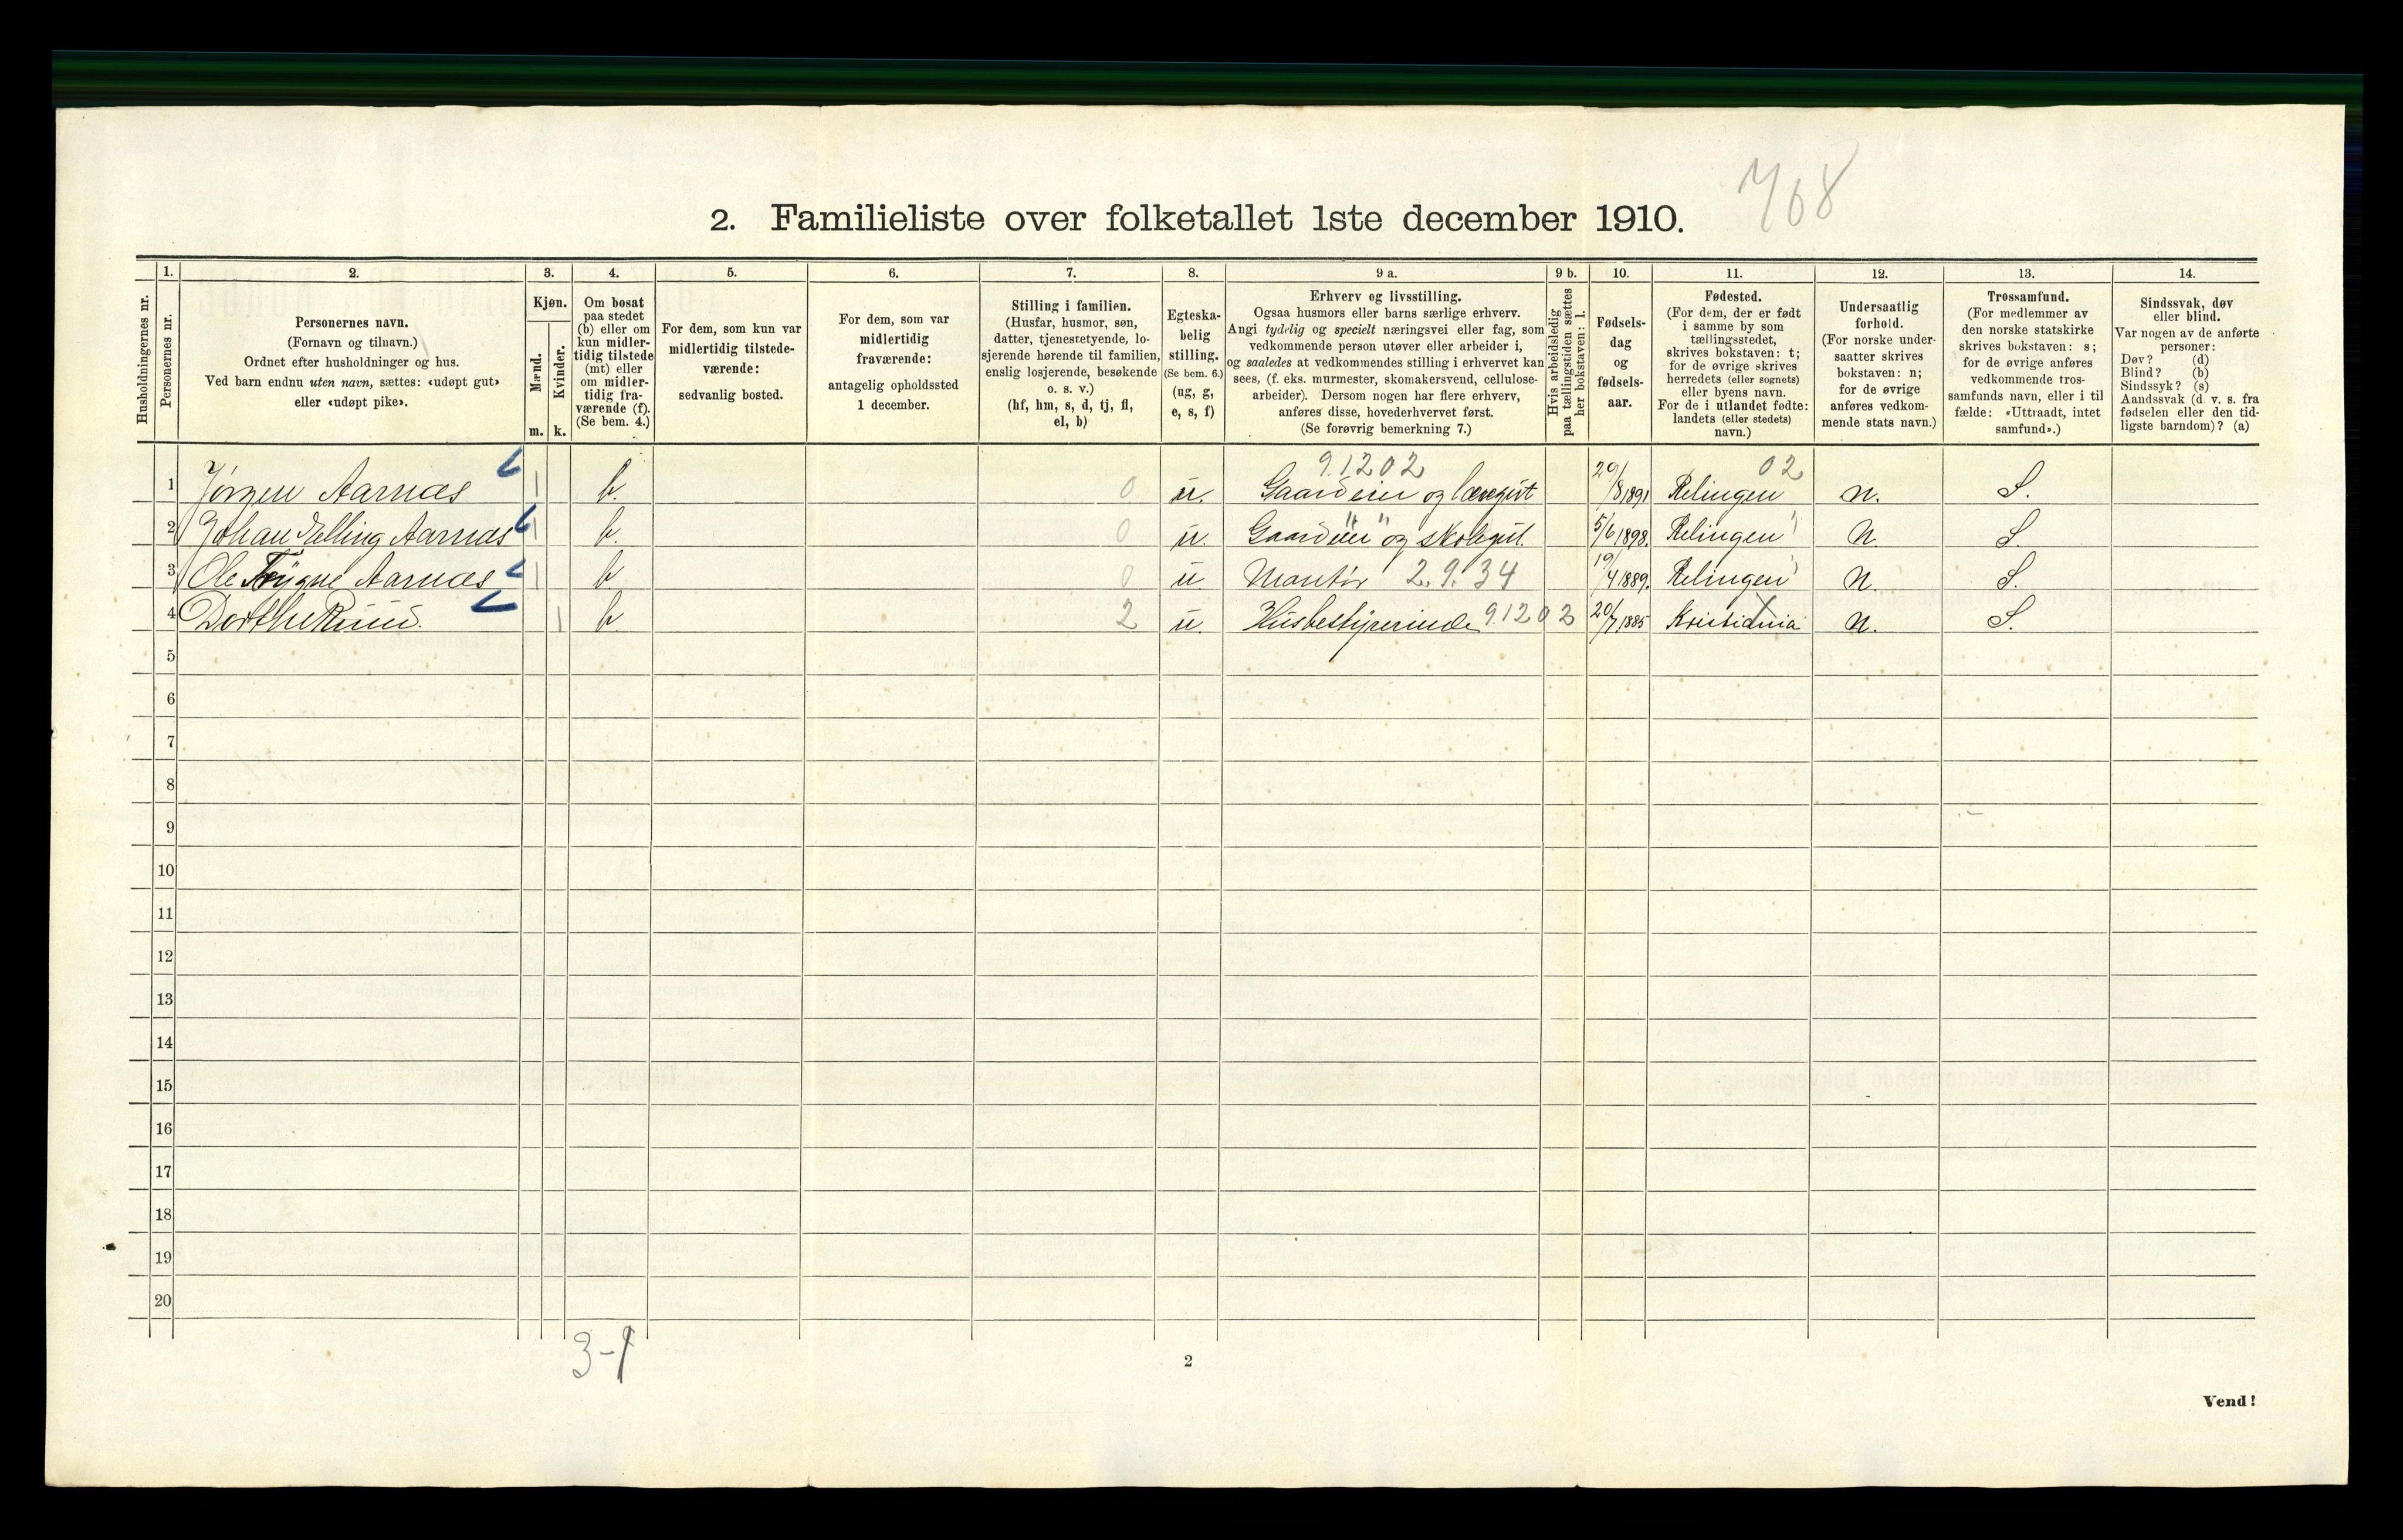 768
2. Familieliste over folketallet 1ste december 1910.
1. 2. 3. 4. 5. 6. 7. 8. 9 a. 9 b. 10. 11. 12. 13. 14.
Husholdningernes nr.
Personernes nr.
Personernes navn.
(Fornavn og tilnavn.)
Ordnet efter husholdninger og hus.
Ved barn endnu uten navn, sættes: «udøpt gut»
eller «udøpt pike».
Kjøn.
Mænd.
Kvinder.
m. k.
Om bosat
paa stedet
(b) eller om
kun midler-
tidig tilstede
(mt) eller
om midler-
tidig fra-
værende (f).
(Se bem. 4.)
For dem, som kun var
midlertidig tilstede-
værende:
sedvanlig bosted.
For dem, som var
midlertidig
fraværende:
antagelig opholdssted
1 december.
Stilling i familien.
(Husfar, husmor, søn,
datter, tjenestetyende, lo-
sjerende hørende til familien,
enslig losjerende, besøkende
o. s. v.)
(hf, hm, s, d, tj, fl,
el, b)
Egteska-
belig
stilling.
(Se bem. 6.)
(ug, g,
e, s, f)
Erhverv og livsstilling.
Ogsaa husmors eller barns særlige erhverv.
Angi tydelig og specielt næringsvei eller fag, som
vedkommende person utøver eller arbeider i,
og saaledes at vedkommendes stilling i erhvervet kan
sees, (f. eks. murmester, skomakersvend, cellulose-
arbeider). Dersom nogen har flere erhverv,
anføres disse, hovederhvervet først.
(Se forøvrig bemerkning 7.)
Hvis arbeidsledig
paa tællingstiden sættes
her bokstaven: l.
Fødsels-
dag
og
fødsels-
aar.
Fødested.
(For dem, der er født
i samme by som
tællingsstedet,
skrives bokstaven: t;
for de øvrige skrives
herredets (eller sognets)
eller byens navn.
For de i utlandet fødte:
landets (eller stedets)
navn.)
Undersaatlig
forhold.
(For norske under-
saatter skrives
bokstaven: n;
for de øvrige
anføres vedkom-
mende stats navn.)
Trossamfund.
(For medlemmer av
den norske statskirke
skrives bokstaven: s;
for de øvrige anføres
vedkommende tros-
samfunds navn, eller i til
fælde: «Uttraadt, intet
samfund».)
Sindssvak, døv
eller blind.
Var nogen av de anførte
personer:
Døv? (d)
Blind? (b)
Sindssyk? (s)
Aandssvak (d. v. s. fra
fødselen eller den tid-
ligste barndom)? (a)
9.1202 02
1 Jørgen Aarnæs 1 b. 0 u. Gaardeier og læregut 29/8 1891 Relingen n. S.
2 Johan Elling Aarnæs 1 b. 0 u. Gaardeier " " og skolegut. 5/6 1898. Relingen " n. S.
3 Ole Trygve Aarnæs 1 b 0 u Montør 2.9.34 19/4 1889. Relingen " n. S.
4 Dorthe Ruud. 1 b 2 u. Husbestyrerinde 9.1202 20/7 1885 Kristiania n. S.
5
6
7
8
9
10
11
12
13
14
15
16
17
18
19
20
3-1
2
Vend!